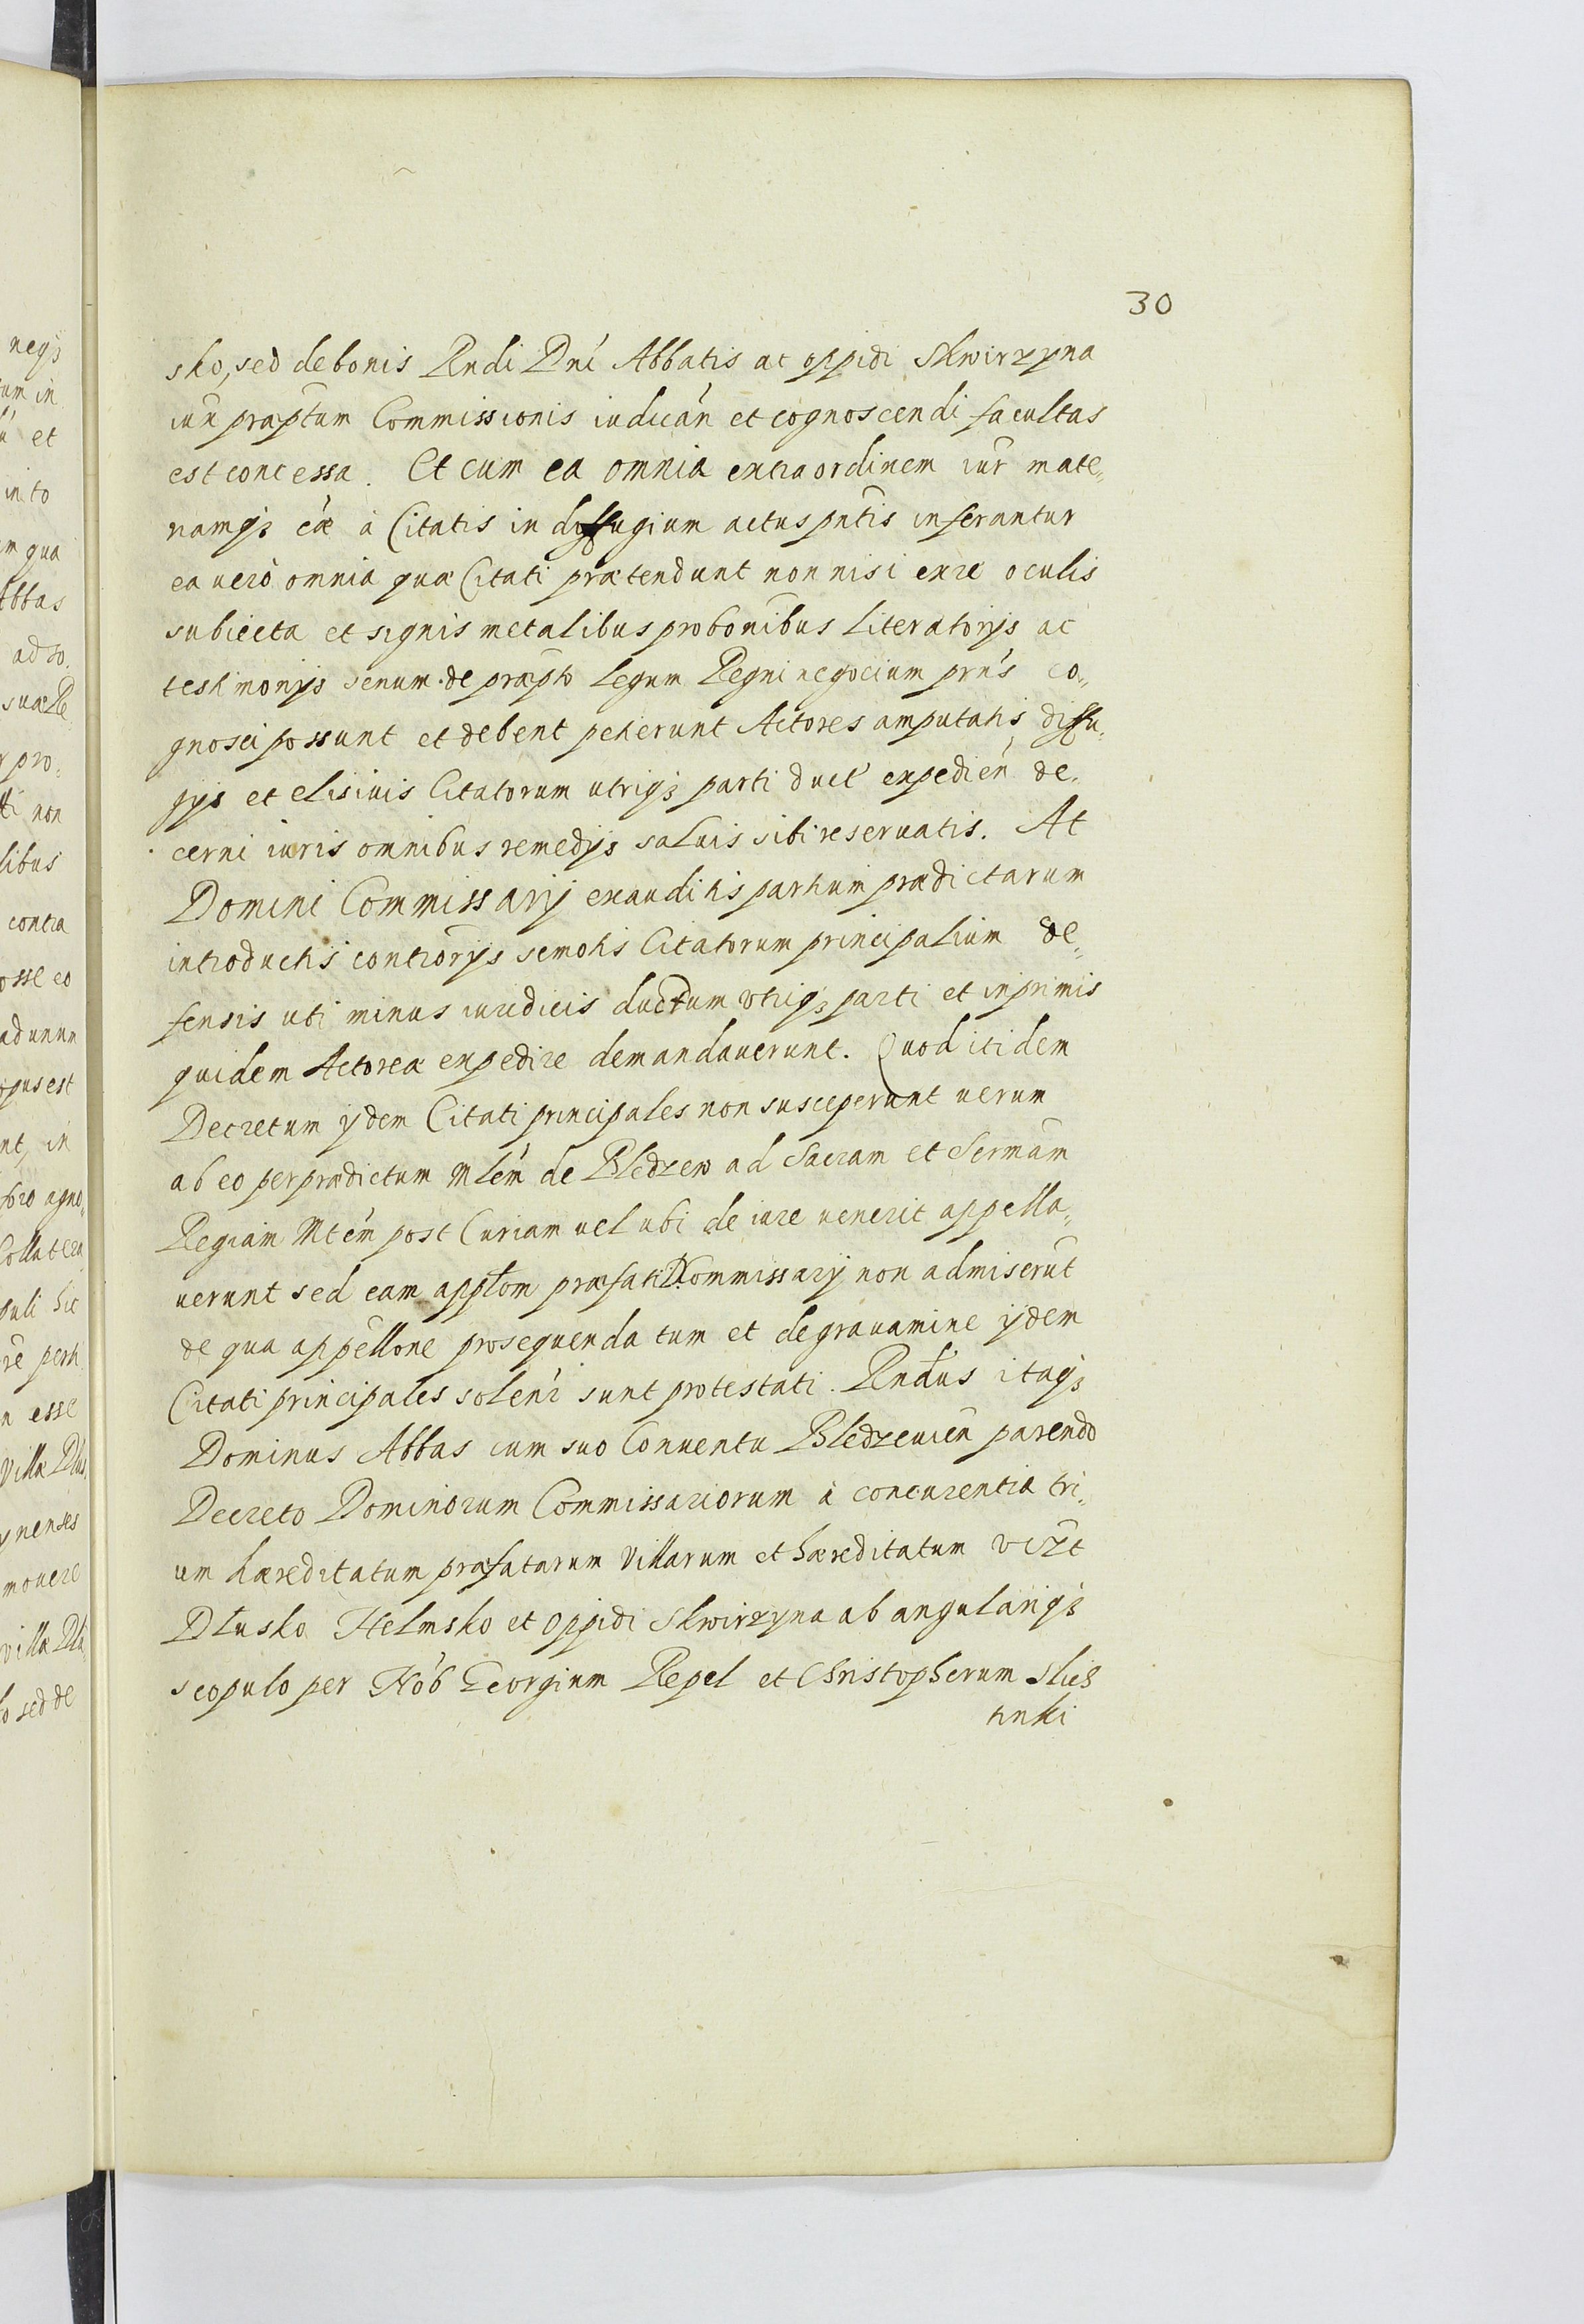 30
sko, sed de bonis Rndi Dni Abbatis ac oppidi Skwirzyna
iux praeptum Commissionis iudican et cognoscendi facultas
est concessa. Et cum ea omnia extra ordinem iur mate„
riamqz eae à Citatis in diffugium actus pntis inserantur
ea verò omnia quae Citati praetendunt non nisi ex re oculis
subiecta et signis metalibus probonibus literatorijs ac
testimonijs senum de praepto legum Regni negocium prns co„
gnosci possunt et debent petierunt Actores amputatis diffu„
gijs et elisiuis Citatorum utriqz parti duct expedien de„
cerni iuris omnibus remedijs saluis sibi reseruatis. At
Domini Commissarij exauditis partium praedictarum
introductis controrijs semotis Citatorum principalium de„
fensis uti minus iuridicis ductum vtriqz parti et inprimis
quidem Actorea expedire demandauerunt. Quod itidem
Decretum ijdem Citati principales non susceperunt uerum
ab eo per praedictum Mlem de Bledzew ad Sacram et Sermam
Regiam Mtem post Curiam uel ubi de iure uenerit appella„
uerunt sed eam appltom praefati D. Commissarij non admiserut
de qua appellone prosequenda tum et de grauamine ijdem
Citati principales solenr sunt protestati. Rndus itaqz
Dominus Abbas cum suo Conuentu Bledzeuien parendo
Decreto Dominorum Commissariorum à concurentia tri„
um haereditatum praefatarum Villarum et haereditatum vizt
Dlusko Helmsko et Oppidi Skwirzyna ab angulariqz
scopulo per Nob Georgium Repel et Christopherum Slich
tinki
neqz
um in
et
into
m qua
Abbas
ad so„
suae Re
pro„
non
libus
contra
osse eo
ad unum
opus est
nt, in
foro agno„
Collatera„
puli hic
re perti
n esse
Villae Dlus
ynenses
mouere
villae Dlu
o sed de